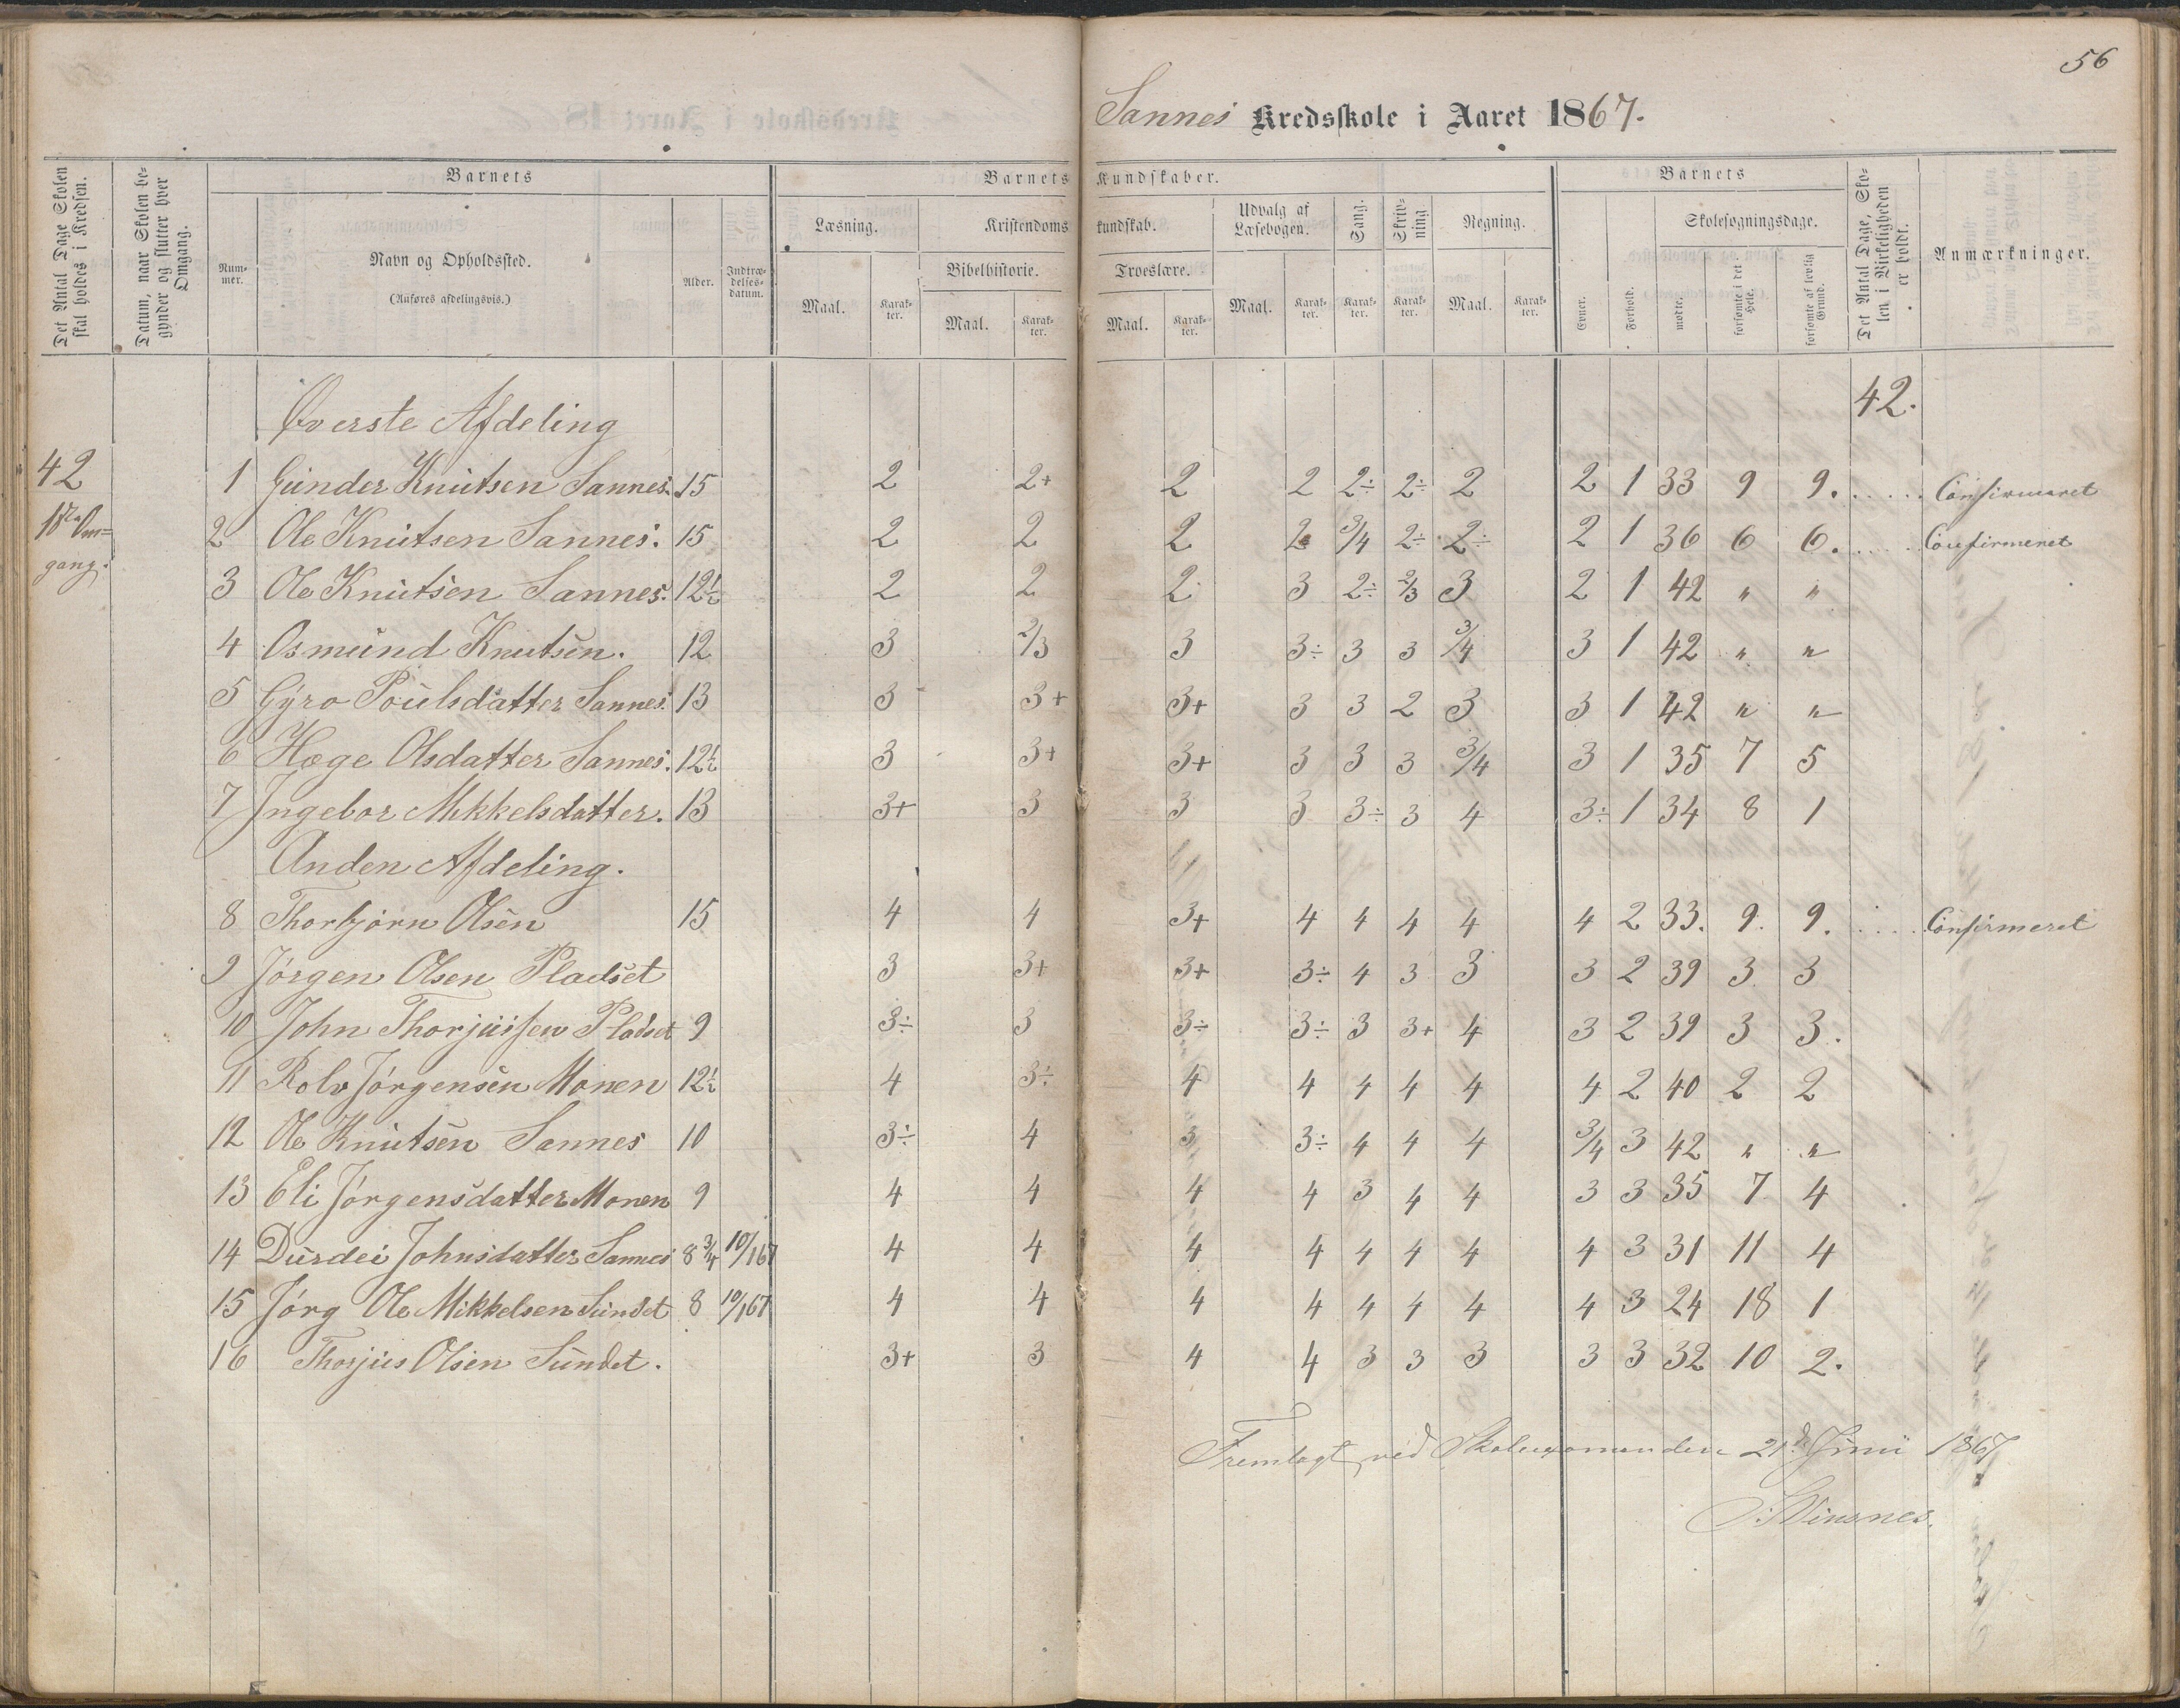 56
Sannes Kredsskole i Aaret 1867.
Det Antal Dage Skolen skal holdes i Kredsen.
Datum, naar Skolen begynder og slutter hver Omgang.
Barnets
Nummer.
Navn og Opholdssted.
(Anføres afdelingsvis.)
Alder.
Indtrædelsesdatum.
Barnets Kundskaber.
Læsning.
Maal. Karakter.
Kristendomskundskab.
Bibelhistorie.
Maal. Karakter.
Troeslære.
Maal. Karakter.
Udvalg af Læsebogen.
Maal. Karakter.
Sang.
Karakter.
Skrivning
Karakter.
Regning.
Maal. Karakter.
Barnets
Evner.
Forhold.
Skolesøgningsdage.
mødte.
forsømte i det Hele.
forsømte af lovlig Grund.
Det Antal Dage, Skolen i Virkeligheden er holdt.
Anmærkninger.
Øverste Afdeling 42.
42
1ste Om=
gang.
1 Gunder Knutsen Sannes. 15 2 2+ 2 2 2÷ 2÷ 2 2 1 33 9 9. Confirmeret
2 Ole Knutsen Sannes. 15 2 2 2 2 3/4 2÷ 2÷ 2 1 36 6 6. Confirmeret
3 Ole Knutsen Sannes. 12½ 2 2 2 3 2÷ 2/3 3 2 1 42 " "
4 Osmund Knutsen. 12 3 2/3 3 3÷ 3 3 3/4 3 1 42 " "
5 Gyro Poulsdatter Sannes. 13 3 3+ 3+ 3 3 2 3 3 1 42 " "
6 Hæge Olsdatter Sannes. 12½ 3 3+ 3+ 3 3 3 3/4 3 1 35 7 5
7 Ingebor Mikkelsdatter. 13 3+ 3 3 3 3÷ 3 4 3÷ 1 34 8 1
Anden Afdeling.
8 Thorbjørn Olsen 15 4 4 3+ 4 4 4 4 4 2 33. 9. 9. Confirmeret
9 Jørgen Olsen Pladset 3 3+ 3+ 3÷ 4 3 3 3 2 39 3 3
10 John Thorjussen Pladset 9 3÷ 3 3÷ 3÷ 3 3+ 4 3 2 39 3 3.
11 Rolv Jørgensen Monen 12½ 4 3÷ 4 4 4 4 4 4 2 40 2 2
12 Ole Knutsen Sannes 10 3÷ 4 3 3÷ 4 4 4 3/4 3 42 " "
13 Eli Jørgensdatter Monen 9 4 4 4 4 3 4 4 3 3 35 7 4
14 Durdei Johnsdatter Sannes 8¾ 10/1 67 4 4 4 4 4 4 4 4 3 31 11 4
15 Jørg Ole Mikkelsen Sundet 8 10/1 67 4 4 4 4 4 4 4 4 3 24 18 1
16 Thorjus Olsen Sundet. 3+ 3 4 4 3 3 3 3 3 32 10 2.
Fremlagt ved Skoleexamen den 21d Juni 1867